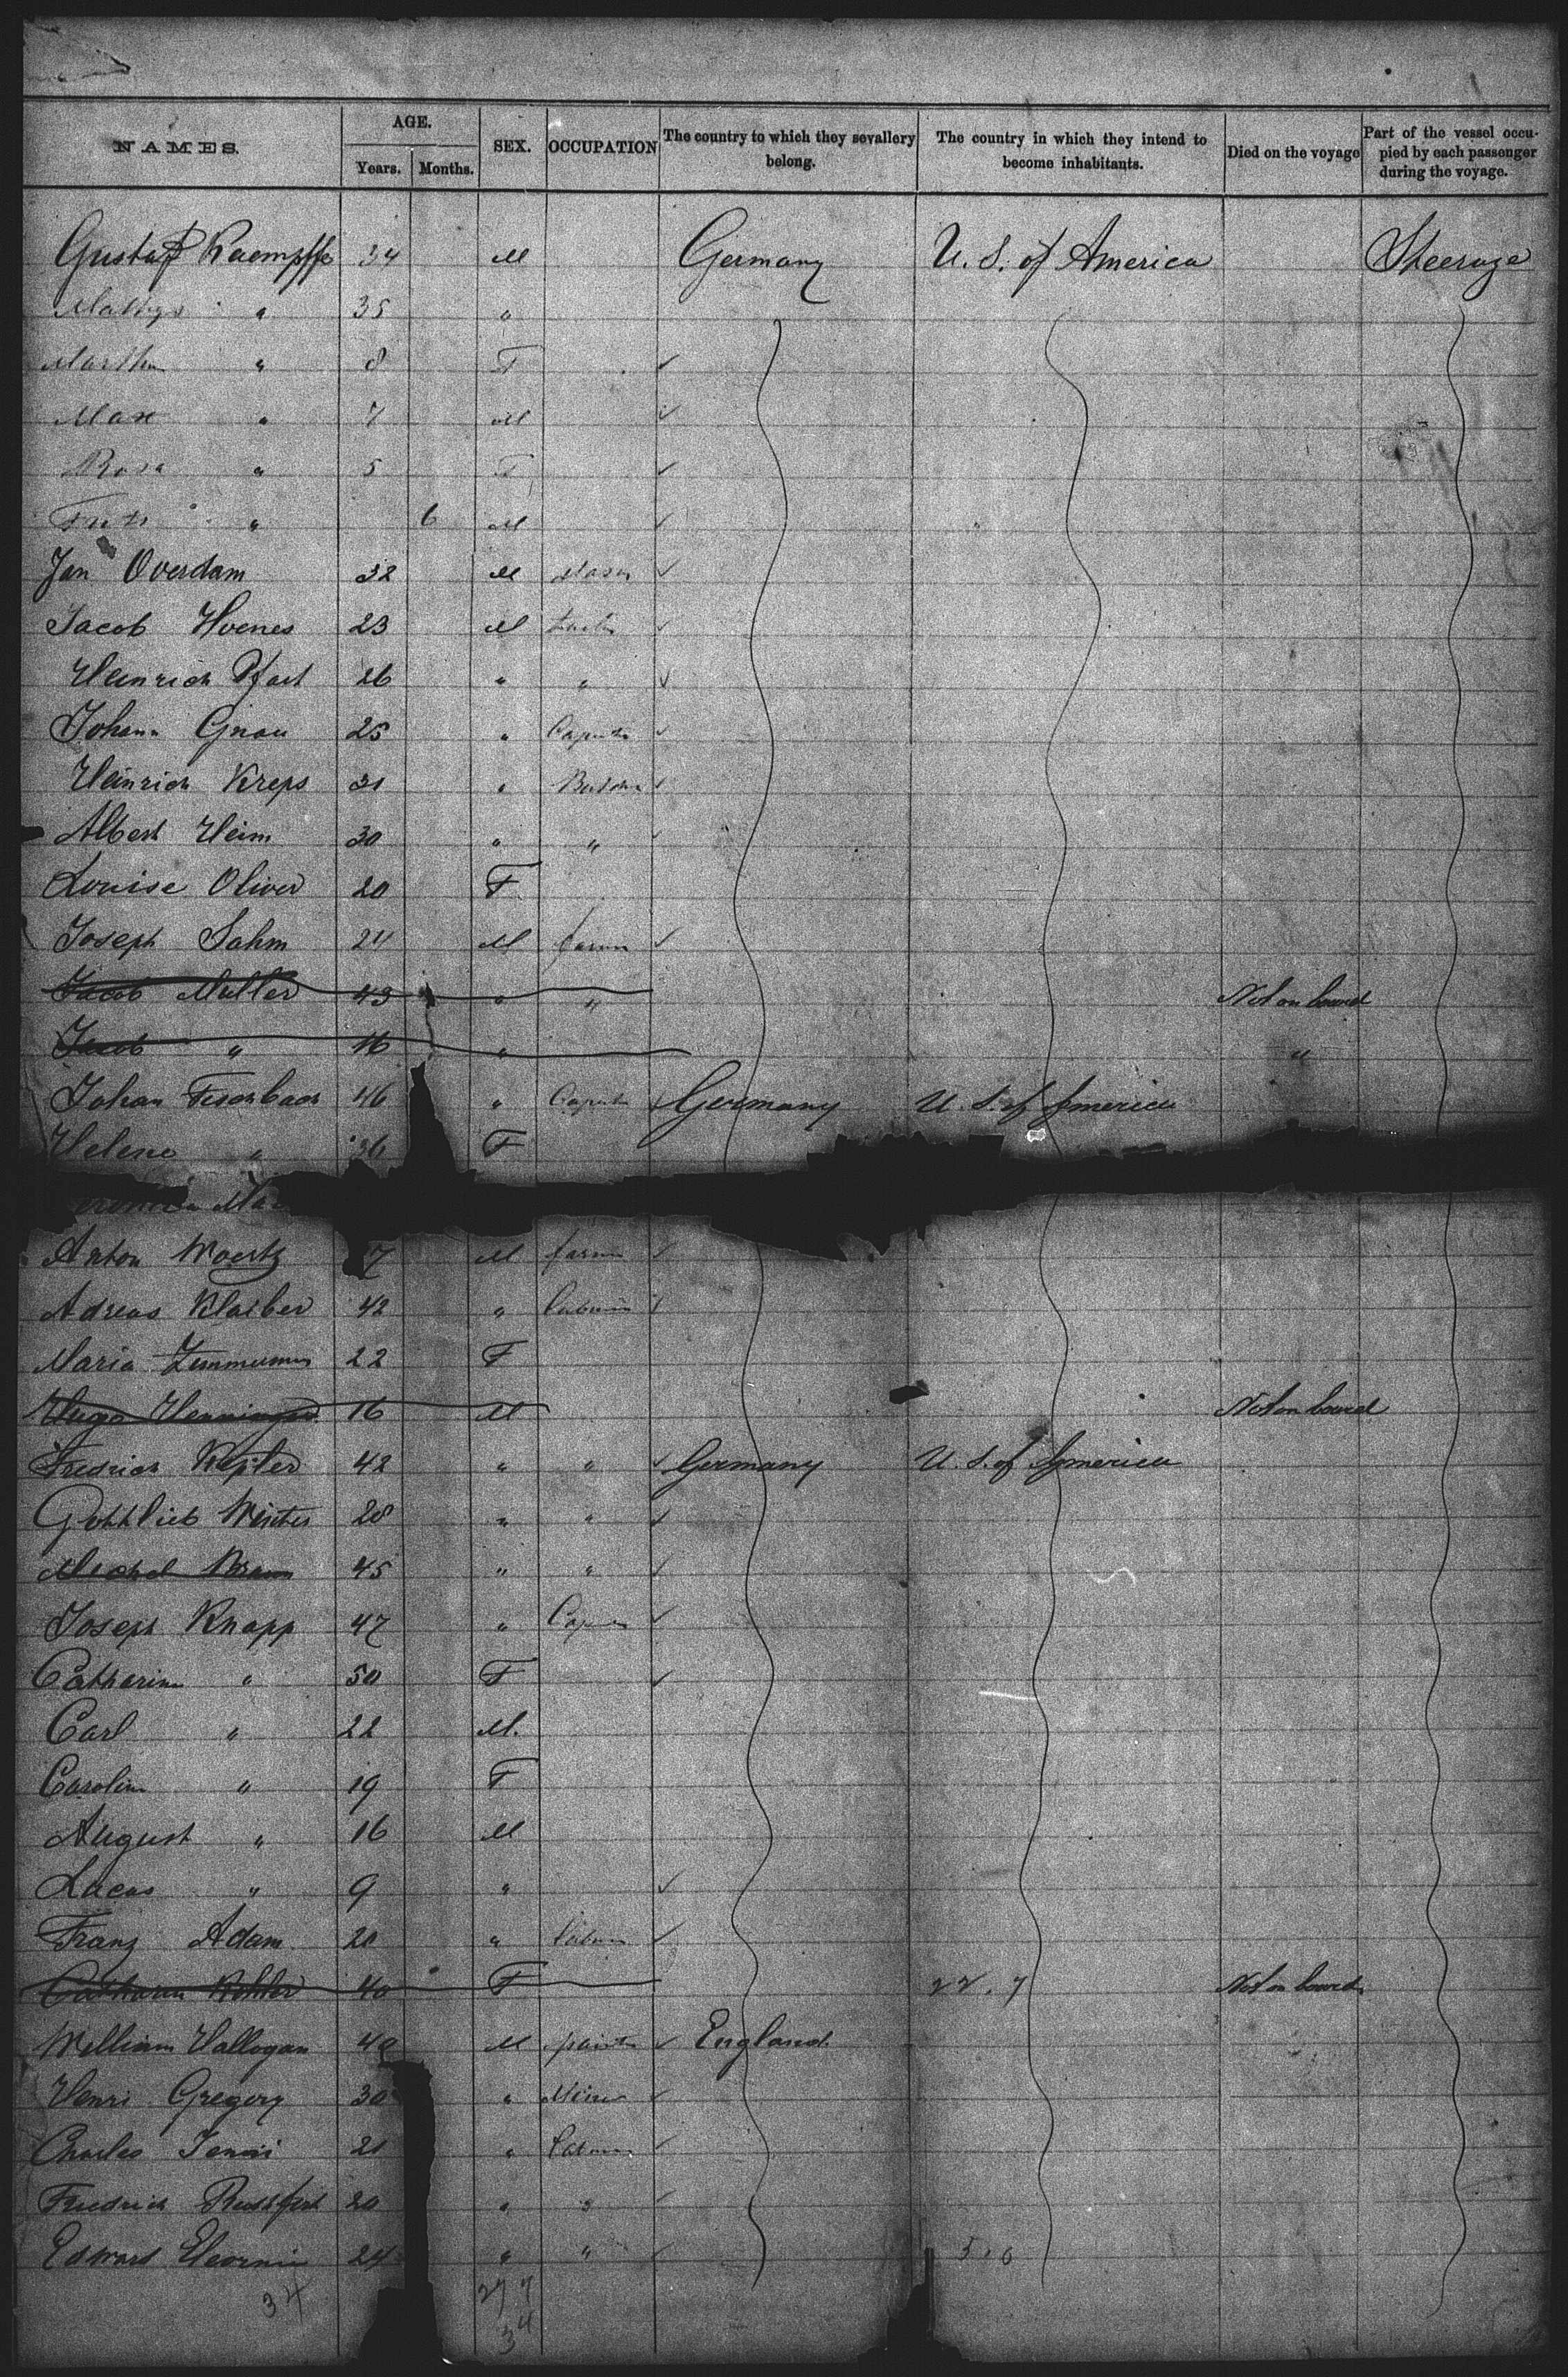 NAMES. AGE. SEX. OCCUPATION The country to which they sevallery belong. The country in which they intend to become inhabitants. Died on the voyage Part of the vessel occupied by each passenger during the voyage.
Years. Months.
Gustaf Kaempffe 34 M Germany U. S. of America Steerage
" 35 "
Martha " 8 F ✓
Max " 7 M ✓
Rosa " 5 F ✓
" 6 M ✓
Jan Overdam 32 M Mason ✓
Jacob Hoenes 23 M ✓
Heinrich Pfast 26 " " ✓
Johann Gnau 25 " ✓
Heinrich Kreps 31 " ✓
Albert Heim 30 " " ✓
Louise Oliver 20 F
Joseph Sahm 24 M farm ✓
Jacob Muller 43 " " Not on board
Jacob " 16 " "
Johan Fischbach 46 " Germany U. S. of America
Helene " 36 F
Anton Woertz 7 M farm ✓
Adreas Klaiber 42 " ✓
Maria 22 F
Hugo Henninger 16 M Not on board
Fredrich Kepler 42 " " ✓ Germany U. S. of America
Gottlieb Winter 28 " " ✓
Michel Braun 45 " " ✓
Joseph Knapp 47 " ✓
Catharin " 50 F ✓
Carl " 22 M.
Carolin " 19 F
August " 16 M
Lucas " 9 " ✓
Franz Adam 20 " ✓
Catharin Kohler 40 F 22.7 Not on board
William Hallogan 40 M paint ✓ England
Henri Gregory 30 " Miner ✓
Charles 21 " ✓
Fredrich 20 " " ✓
Edward 24 " " ✓ 5.6
34 27 7
34